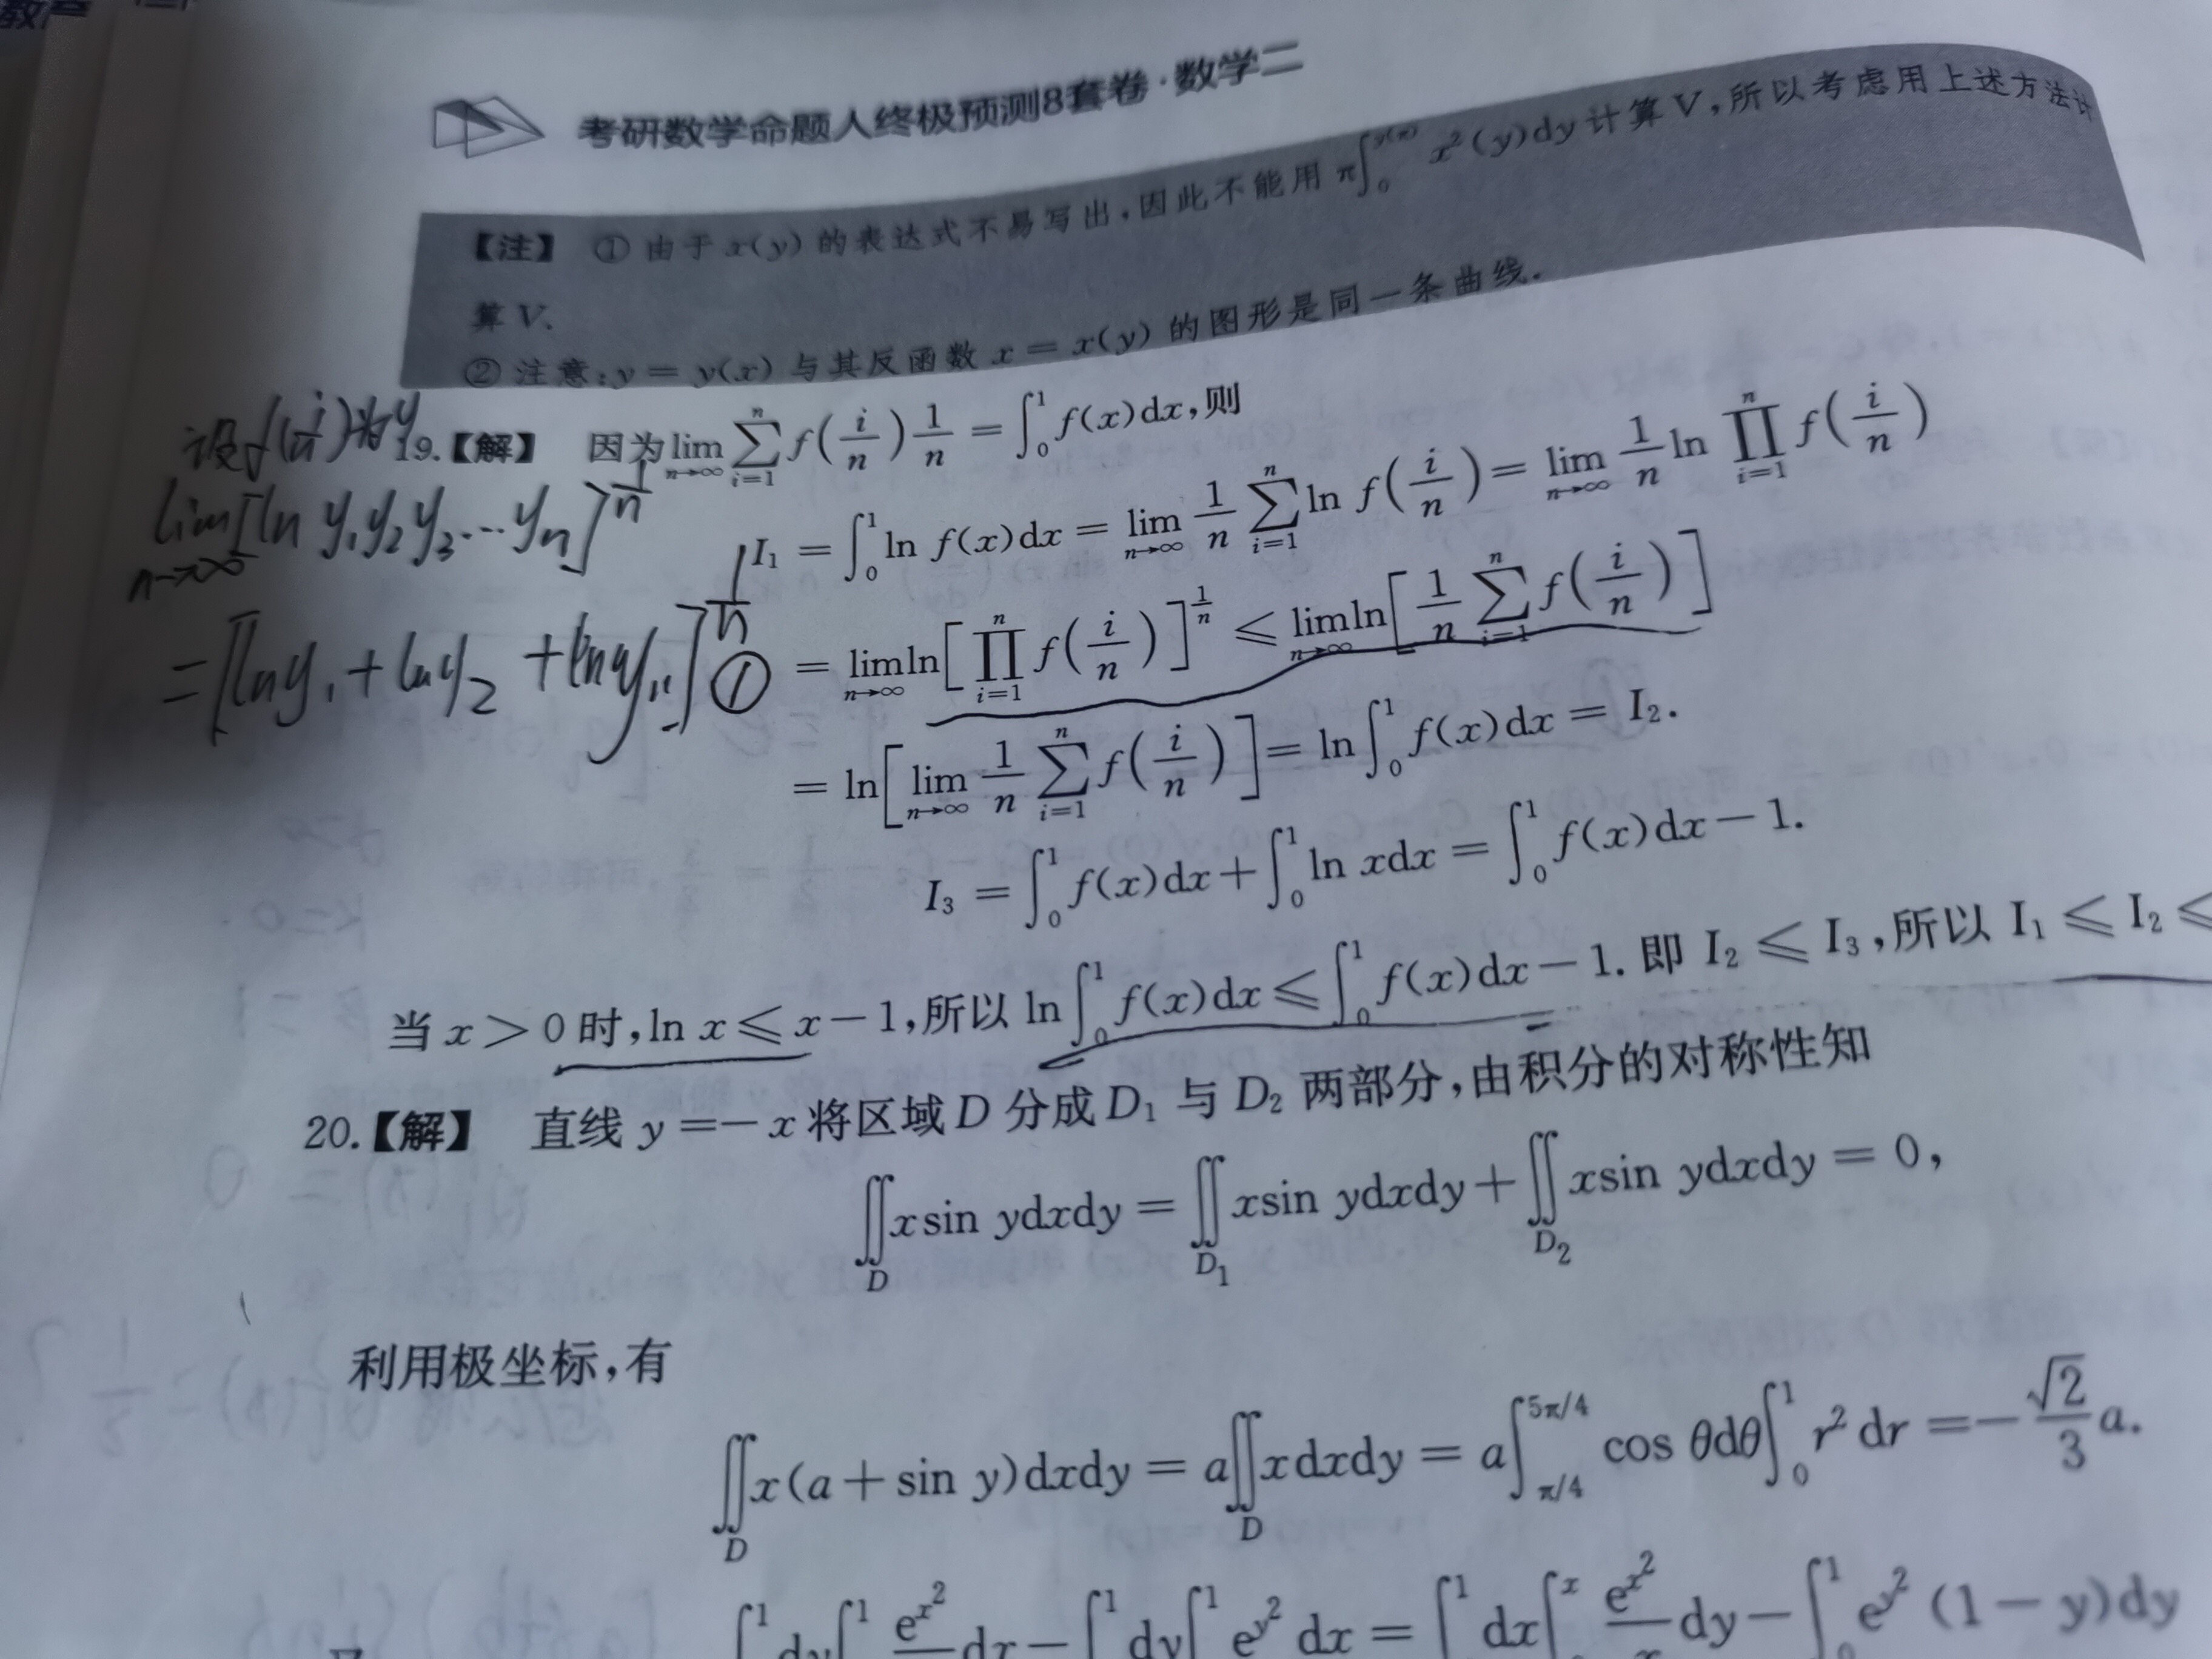 考研数学命题人终极预测8套卷·数学二
【注】 ① 由于 x(y) 的表达式不易写出,因此不能用 π∫₀^{y(π)} x²(y)dy 计算 V,所以考虑用上述方法计
算 V.
② 注意:y = y(x) 与其反函数 x = x(y) 的图形是同一条曲线.
设f(i/n)为y
19.【解】 因为 lim_{n→∞} ∑_{i=1}^{n} f(i/n) 1/n = ∫₀¹ f(x)dx,则
lim_{n→∞} [ln y₁y₂y₃…yn]^{1/n}
I₁ = ∫₀¹ ln f(x)dx = lim_{n→∞} 1/n ∑_{i=1}^{n} ln f(i/n) = lim_{n→∞} 1/n ln ∏_{i=1}^{n} f(i/n)
= [lny₁ + lny₂ + lnyn]^{1/n} ①
= lim_{n→∞} ln[∏_{i=1}^{n} f(i/n)]^{1/n} ⩽ lim_{n→∞} ln[1/n ∑_{i=1}^{n} f(i/n)]
= ln[lim_{n→∞} 1/n ∑_{i=1}^{n} f(i/n)] = ln ∫₀¹ f(x)dx = I₂.
I₃ = ∫₀¹ f(x)dx + ∫₀¹ ln xdx = ∫₀¹ f(x)dx − 1.
当 x > 0 时,ln x ⩽ x − 1,所以 ln ∫₀¹ f(x)dx ⩽ ∫₀¹ f(x)dx − 1. 即 I₂ ⩽ I₃,所以 I₁ ⩽ I₂ ⩽
20.【解】 直线 y = − x 将区域 D 分成 D₁ 与 D₂ 两部分,由积分的对称性知
∬_D xsin ydxdy = ∬_{D₁} xsin ydxdy + ∬_{D₂} xsin ydxdy = 0,
利用极坐标,有
∬_D x(a + sin y)dxdy = a∬_D xdxdy = a∫_{π/4}^{5π/4} cos θdθ ∫₀¹ r² dr = − √2/3 a.